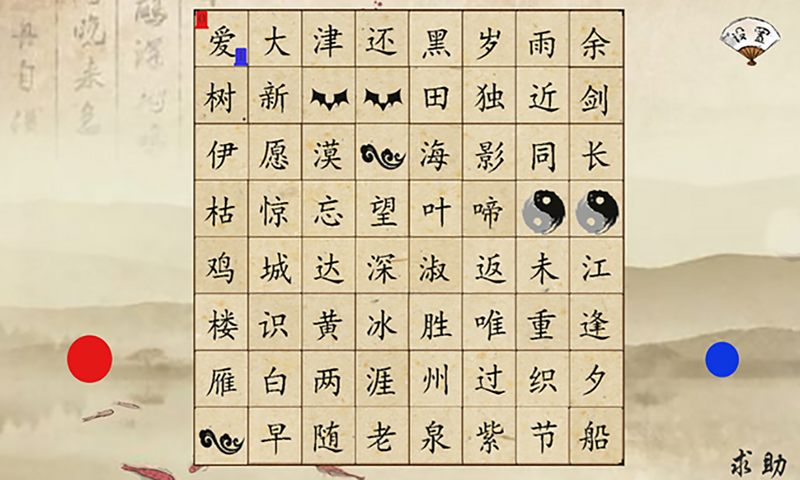 爱大津还黑岁雨余
设置
树新田独近剑
伊愿漠海影同长
枯惊忘望叶啼
鸡城达深淑返未江
楼识黄冰胜唯重逢
雁白两涯州过织夕
早随老泉紫节船
求助